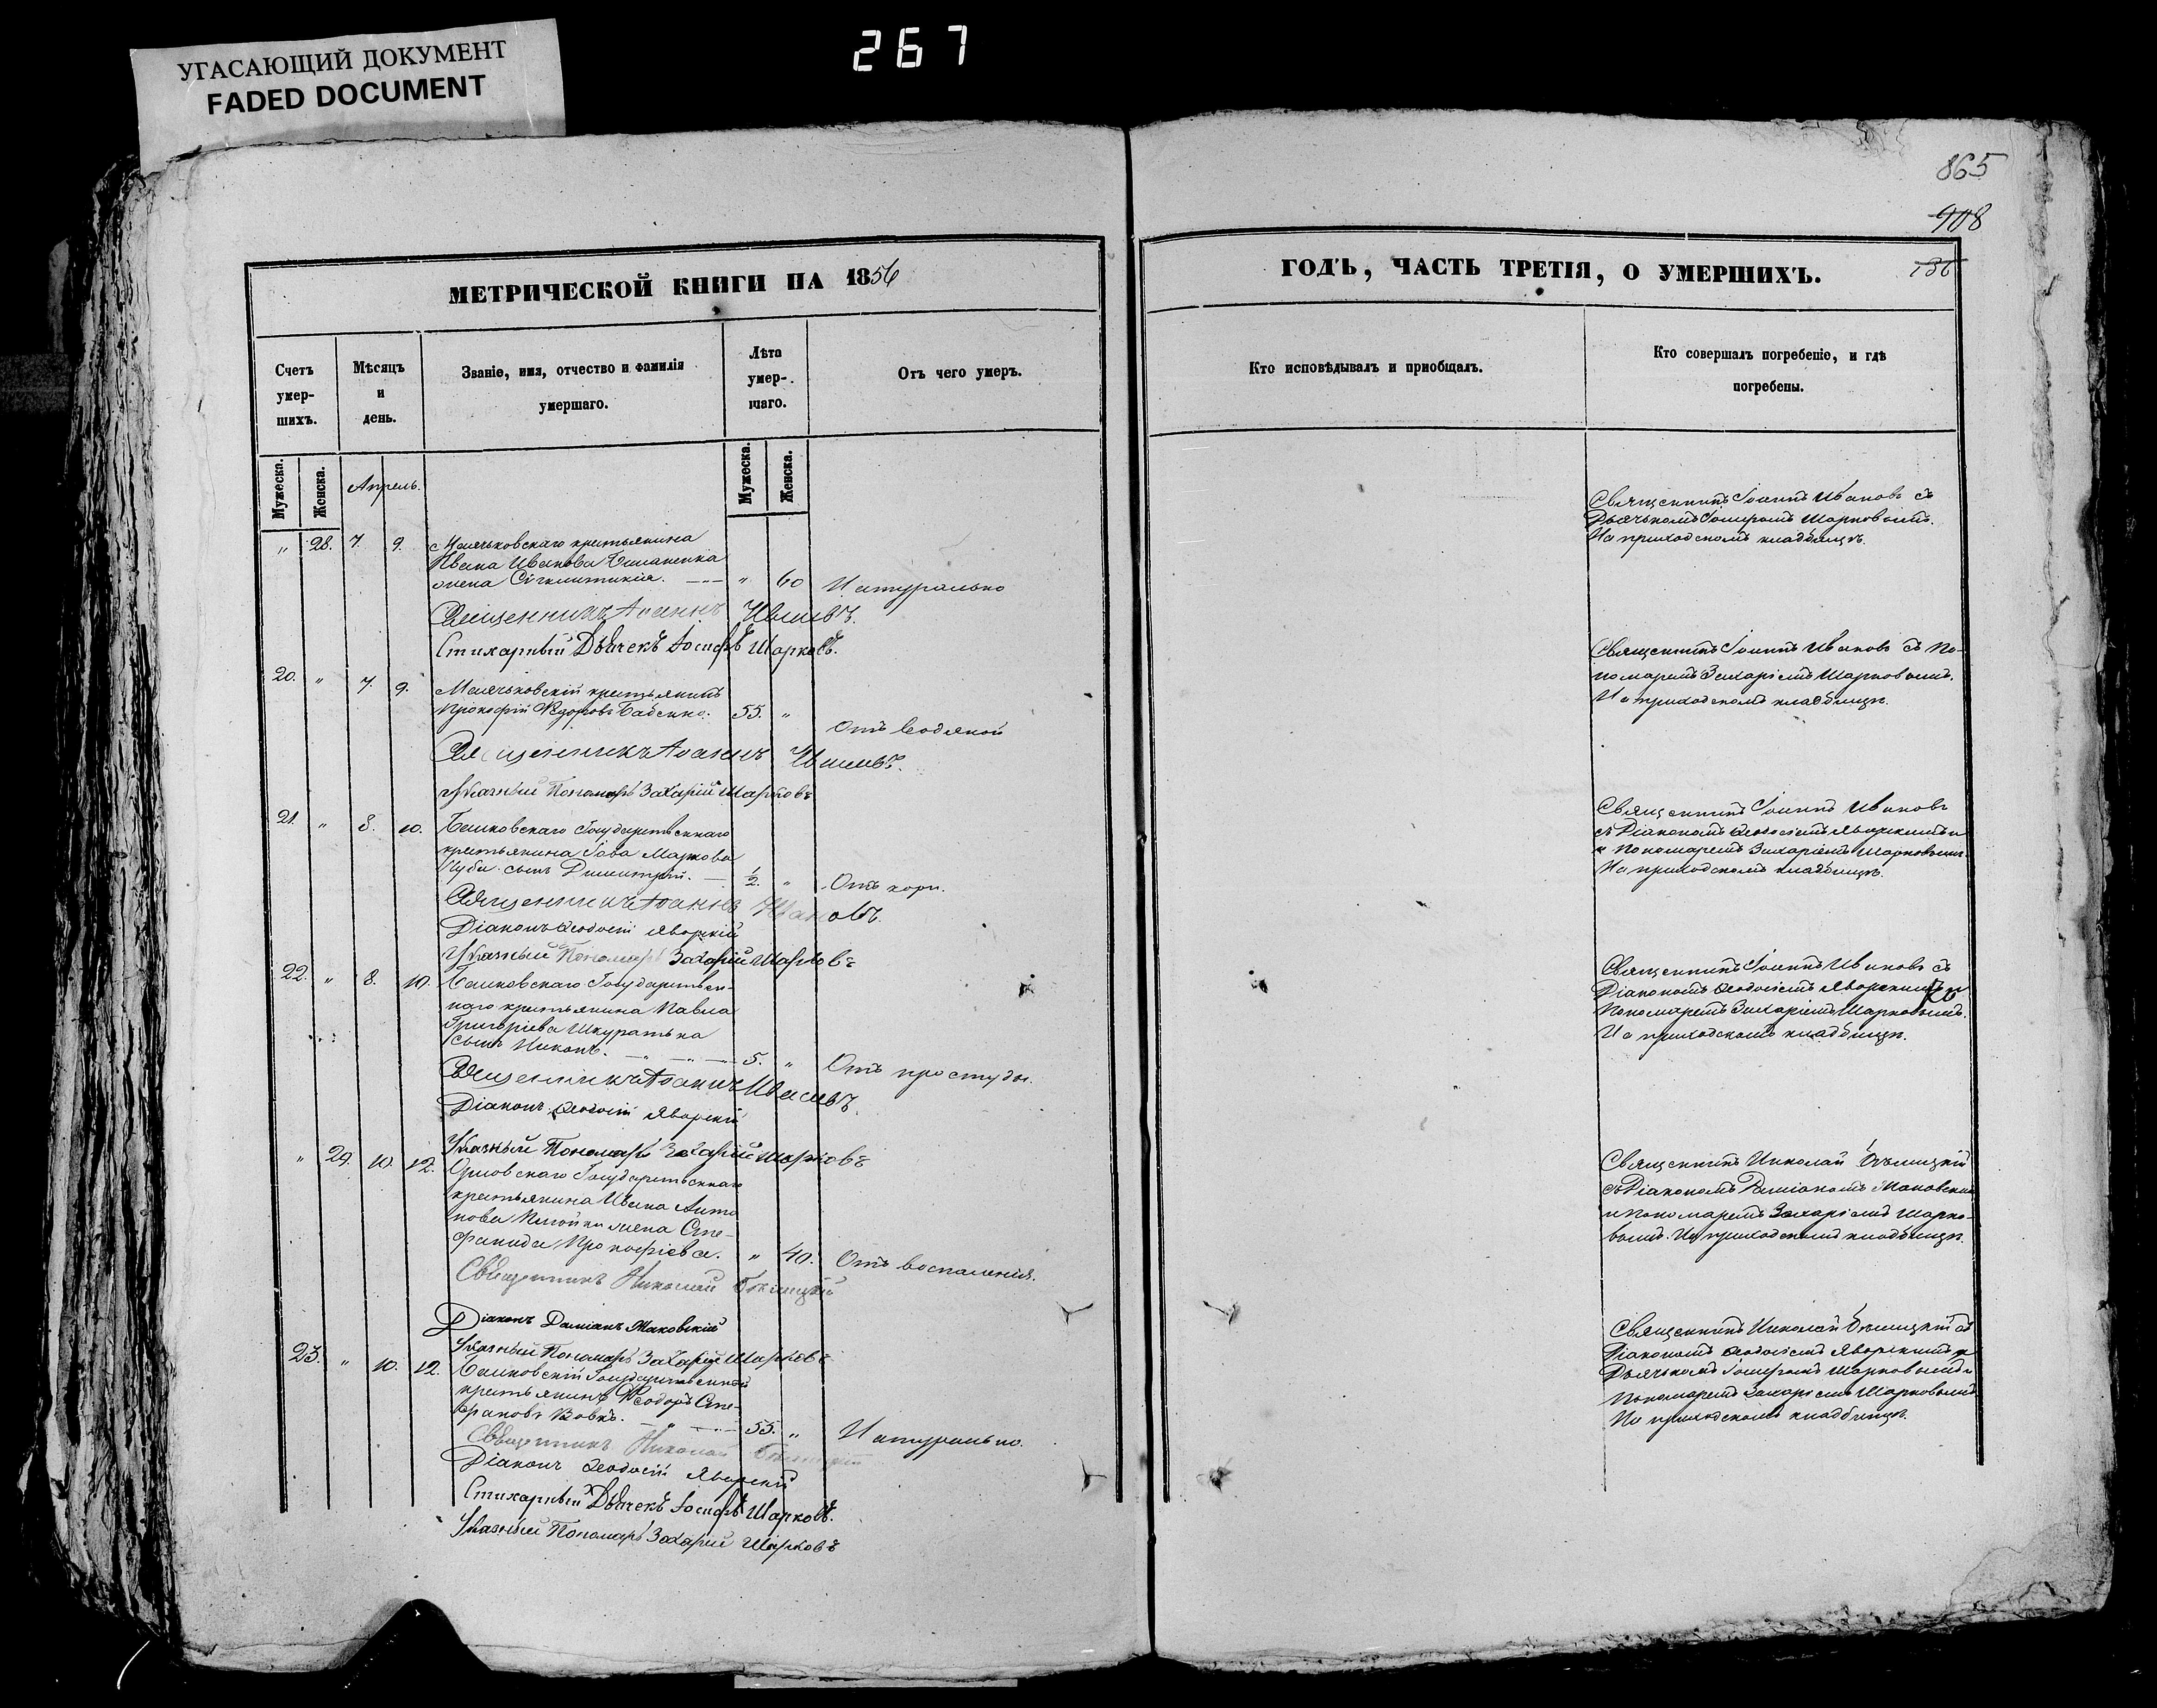 267
УГАСАЮЩИЙ ДОКУМЕНТ
FADED DOCUMENT
865
908
136
МЕТРИЧЕСКОЙ КНИГИ НА 1856
ГОДЪ, ЧАСТЬ ТРЕТІЯ, О УМЕРШИХЪ.
Счетъ умер-шихъ.
Мѣсяцъ и день.
Званіе, имя, отчество и фамилія умершаго.
Лѣта умер-шаго.
Отъ чего умеръ.
Кто исповѣдывалъ и приобщалъ.
Кто совершалъ погребеніе, и гдѣ погребены.
Мужеска.
Женска.
Апрель.
Мужеска.
Женска.
" 28. 7. 9. крестьянина
Ивана Иванова
жена Сигклитикія. " 60 Натурально
Священникъ Іоаннъ Ивановъ.
Стихарный Дьячекъ Іосифъ Шарковъ.
Священникъ Іоаннъ Ивановъ съ
Дьячкомъ Іосифомъ Шарковымъ.
На приходскомъ кладбищѣ.
20. " 7. 9. крестьянинъ
Прокофій Ѳедоровъ Бабенко. 55. " Отъ водяной
Священникъ Іоаннъ Ивановъ.
Указный Пономарь Захарій Шарковъ
Священникъ Іоаннъ Ивановъ съ По-
номаремъ Захаріемъ Шарковымъ.
На приходскомъ кладбищѣ.
21. " 8. 10. Государственнаго
крестьянина Іова Маркова
сынъ Димитрій. 1/2. " Отъ кори.
Священникъ Іоаннъ Ивановъ.
Діаконъ Ѳеодосій Яворскій
Указный Пономарь Захарій Шарковъ
Священникъ Іоаннъ Ивановъ
съ Діакономъ Ѳеодосіемъ Яворскимъ и
Пономаремъ Захаріемъ Шарковымъ.
На приходскомъ кладбищѣ.
22. " 8. 10. Государствен-
наго крестьянина Павла
Григоріева Шкуратька
сынъ Никонъ. 5. " Отъ простуды.
Священникъ Іоаннъ Ивановъ.
Діаконъ Ѳеодосій Яворскій
Указный Пономарь Захарій Шарковъ
Священникъ Іоаннъ Ивановъ съ
Діакономъ Ѳеодосіемъ Яворскимъ и
Пономаремъ Захаріемъ Шарковымъ.
На приходскомъ кладбищѣ.
" 29. 10. 12. Государственнаго
крестьянина Ивана Анто
нова жена Сте-
фанида Прокофіева. " 40. Отъ воспаленія.
Священникъ Николай
Діаконъ Даміанъ Маковскій
Указный Пономарь Захарій Шарковъ
Священникъ Николай
съ Діакономъ Даміаномъ Маковскимъ
и Пономаремъ Захаріемъ Шарко-
вымъ. На приходскомъ кладбищѣ.
23. " 10. 12. Государственный
крестьянинъ Ѳеодоръ Сте-
фановъ Вовкъ. 55. " Натурально.
Священникъ Николай
Діаконъ Ѳеодосій Яворскій
Стихарный Дьячекъ Іосифъ Шарковъ.
Указный Пономарь Захарій Шарковъ
Священникъ Николай съ
Діакономъ Ѳеодосіемъ Яворскимъ
Дьячкомъ Іосифомъ Шарковымъ и
Пономаремъ Захаріемъ Шарковымъ
На приходскомъ кладбищѣ.